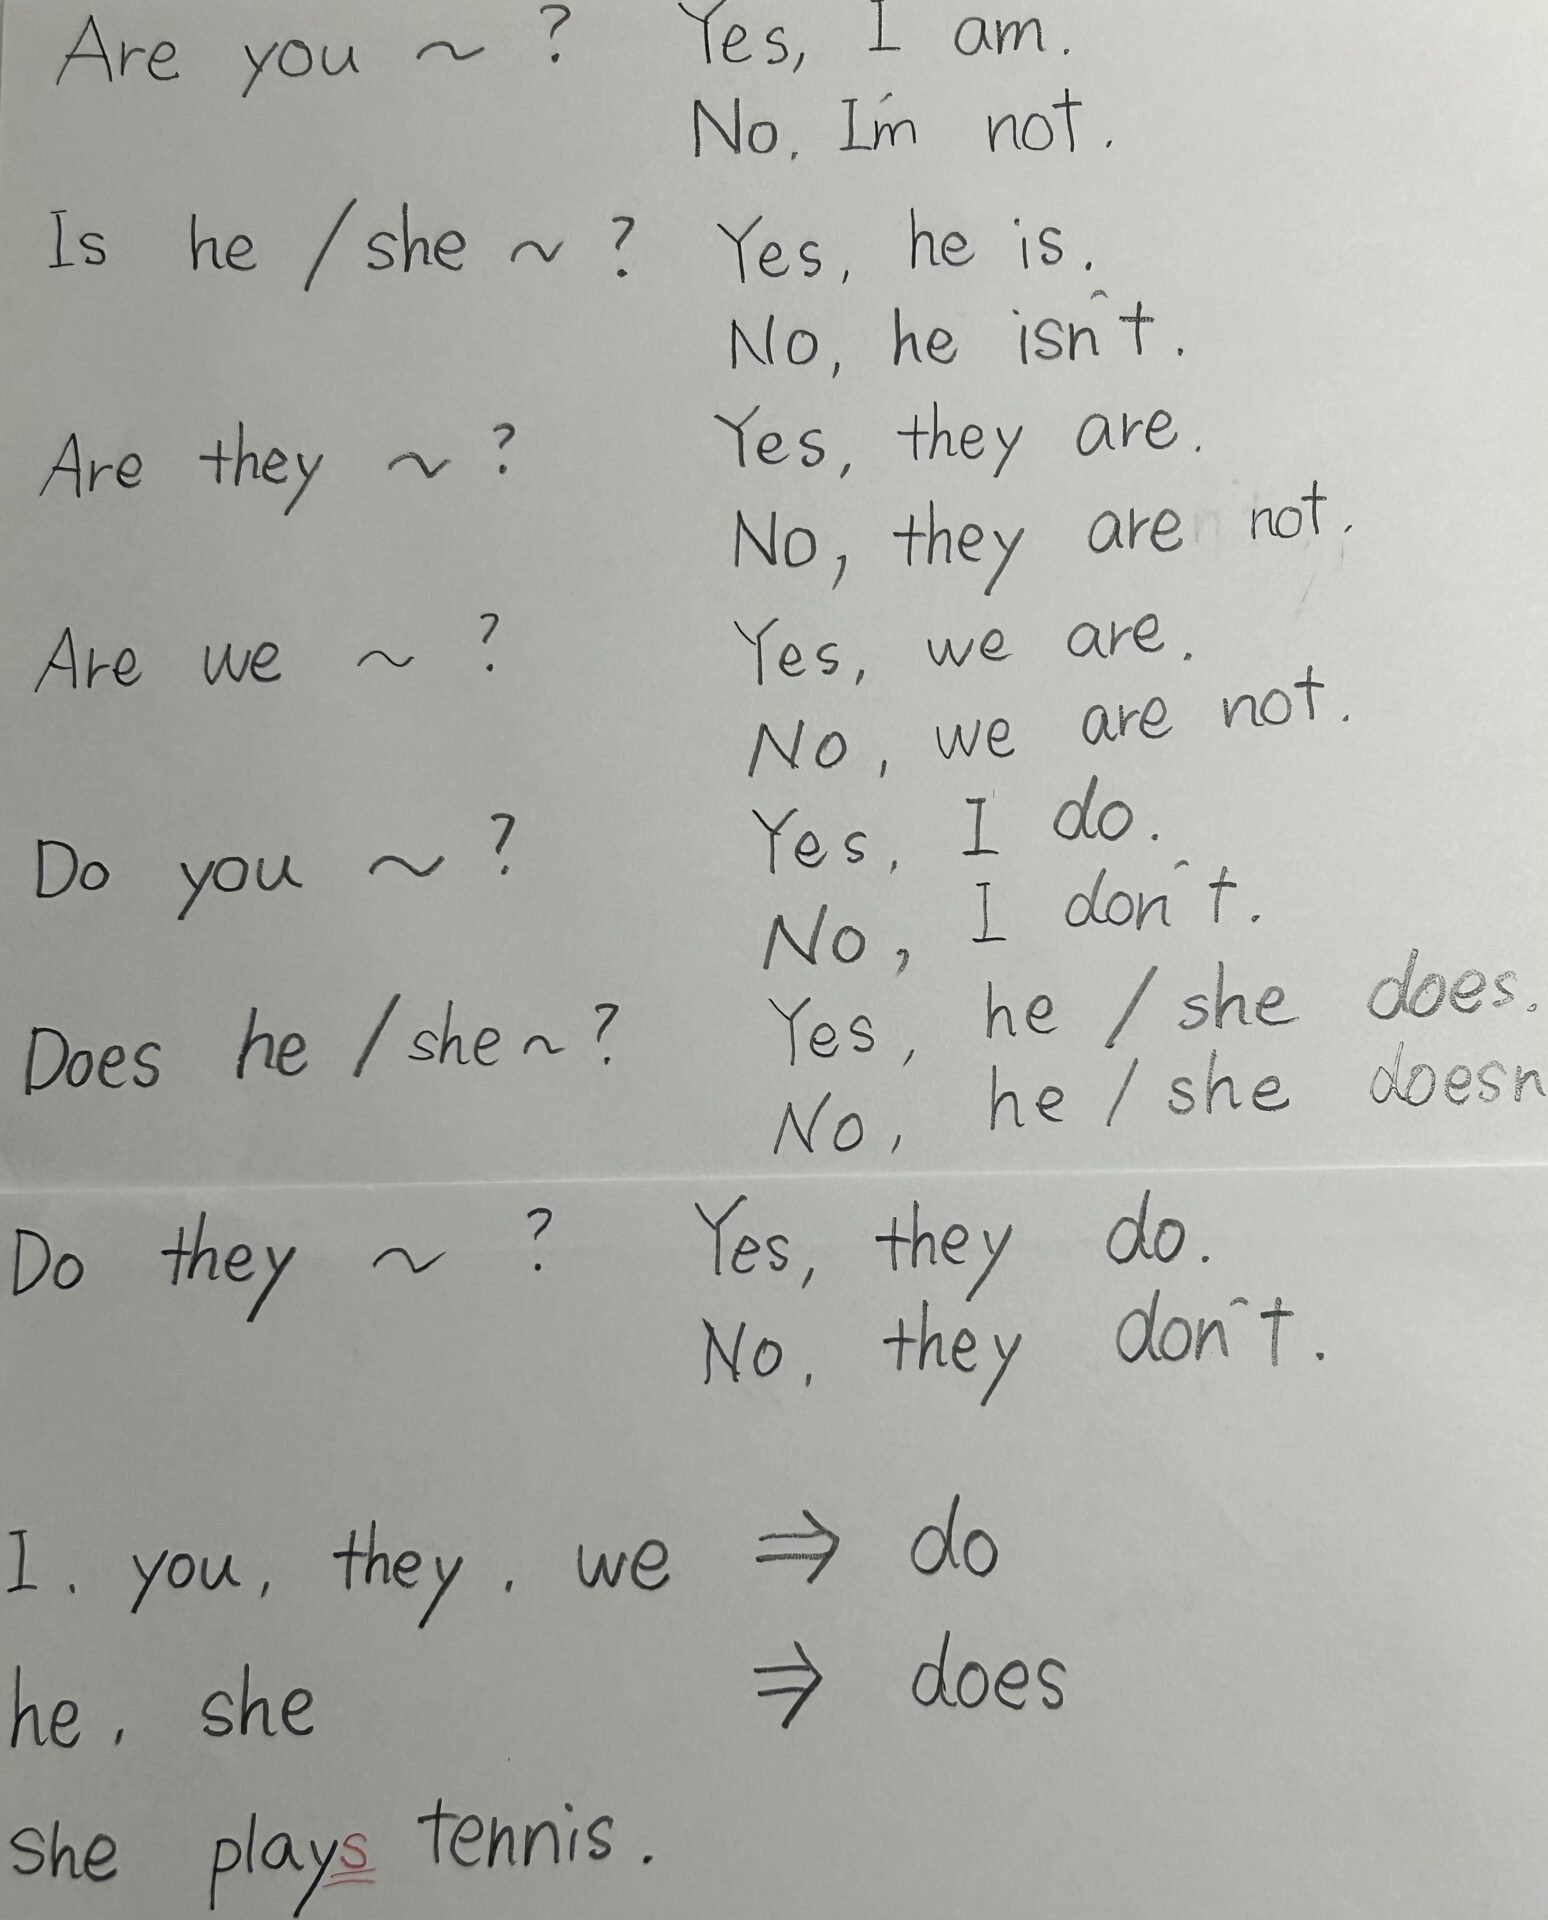 Are you ~ ? Yes, I am.
No. I'm not.
Is he / she ~ ? Yes, he is.
No, he isn't.
Are they ~ ? Yes, they are.
No, they are not.
Are we ~ ? Yes, we are.
No, we are not.
Do you ~ ? Yes, I do.
No, I don't.
Does he / she ~ ? Yes, he / she does.
No, he / she doesn
Do they ~ ? Yes, they do.
No, they don't.
I. you, they. we ⇒ do
he, she ⇒ does
She plays tennis.